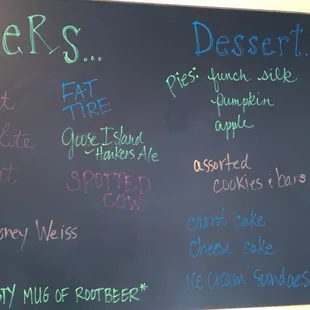 ERS...
FAT
TIRE
Goose Island
Honkers Ale
SPOTTED
COW
oney Weiss
STY MUG OF ROOTBEER*
Dessert..
Pies: funch silk
pumpkin
apple
assorted
cookies & bars
carrot cake
cheese cake
ice cream sundaes